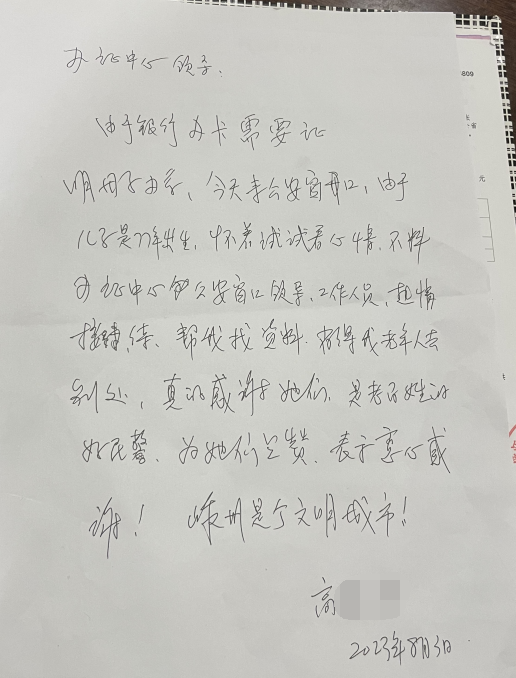 办证中心领导.
由于银行办卡需要证
明母子关系、今天来公安窗开口,由于
儿子是77年出生,怀着试试看心情,不料
办证中心的公安窗口领导、工作人员,热情
接待、帮我找资料.省得我老年人去
别处,真的感谢她们,是老百姓的
好民警.为她们点赞.表示衷心感
谢! 嵊州是个文明城市!!
高
2023年8月3日
809
元